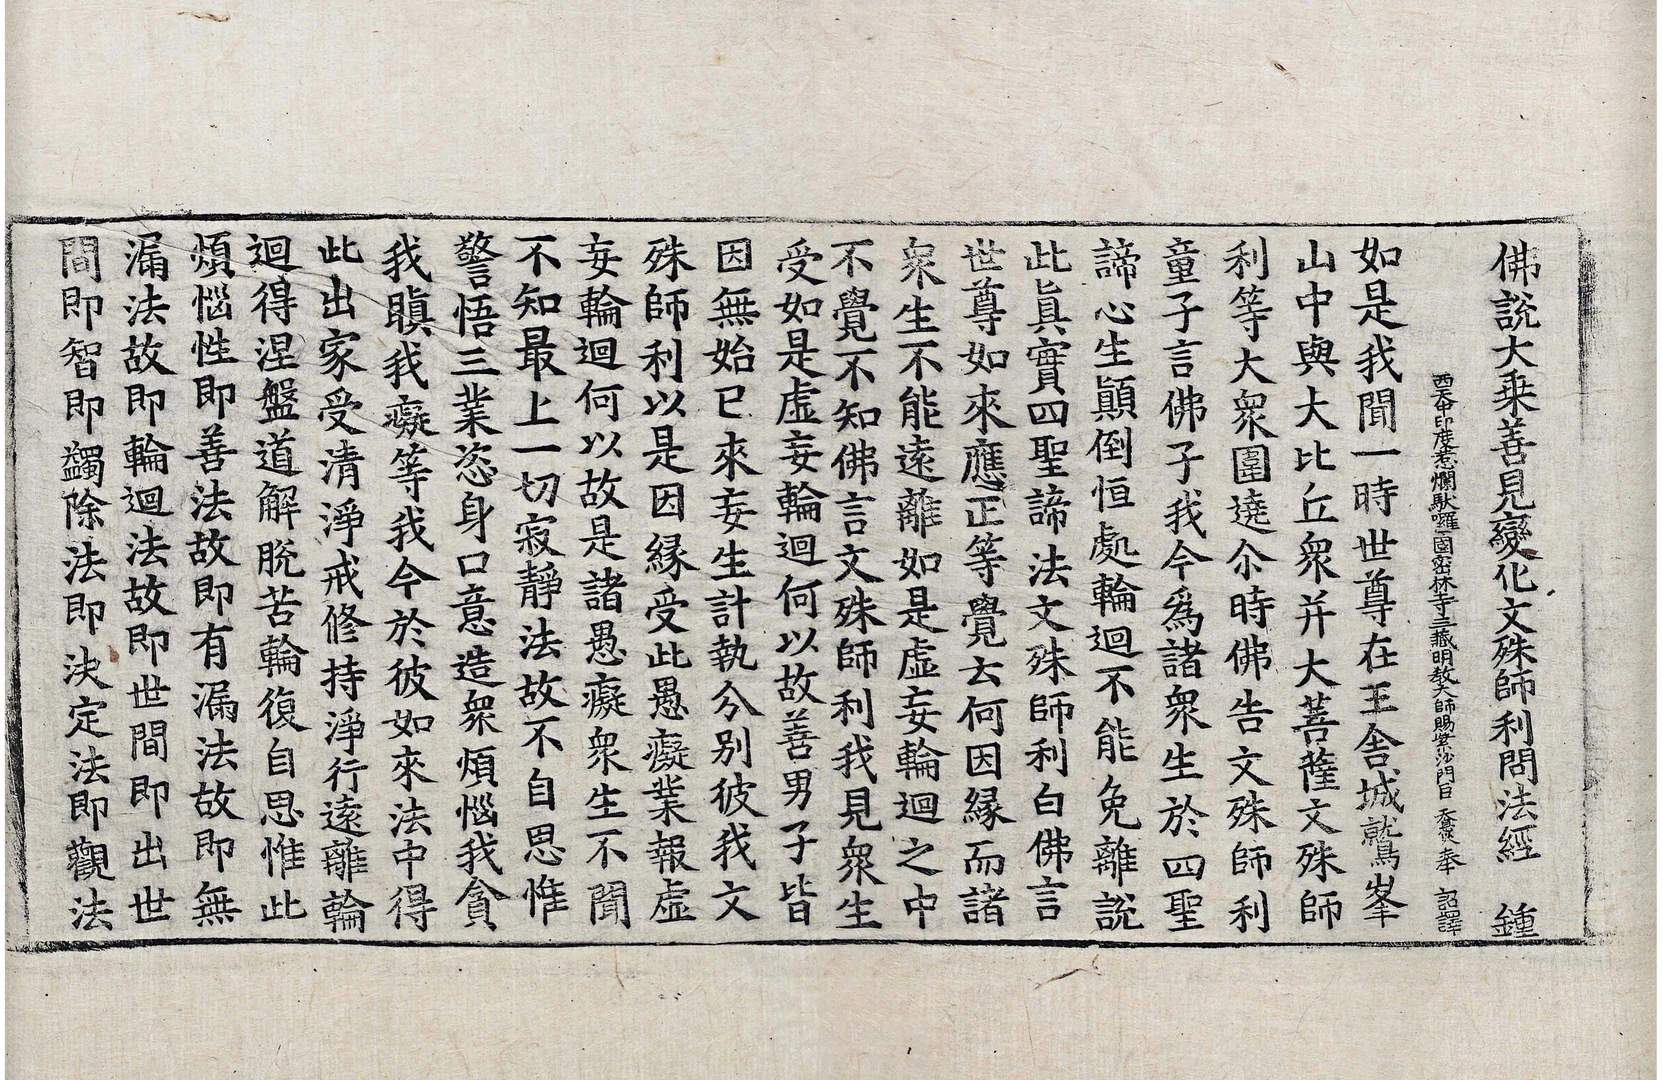 佛說大乘善見變化文殊師利問法經　鍾
西天中印度惹爛馱囉國密林寺三藏明教大師賜紫沙門臣天息災奉　詔譯
如是我聞一時世尊在王舍城鷲峯
山中與大比丘衆并大菩薩文殊師
利等大衆圍遶尒時佛告文殊師利
童子言佛子我今爲諸衆生於四聖
諦心生顛倒恒處輪迴不能免離說
此眞實四聖諦法文殊師利白佛言
世尊如來應正等覺云何因緣而諸
衆生不能遠離如是虛妄輪迴之中
不覺不知佛言文殊師利我見衆生
受如是虛妄輪迴何以故善男子皆
因無始已來妄生計執分別彼我文
殊師利以是因緣受此愚癡業報虛
妄輪迴何以故是諸愚癡衆生不聞
不知最上一切寂靜法故不自思惟
警悟三業恣身口意造衆煩惱我貪
我瞋我癡等我今於彼如來法中得
此出家受清淨戒修持淨行遠離輪
迴得涅盤道解脫苦輪復自思惟此
煩惱性即善法故即有漏法故即無
漏法故即輪迴法故即世間即出世
間即智即蠲除法即決定法即觀法